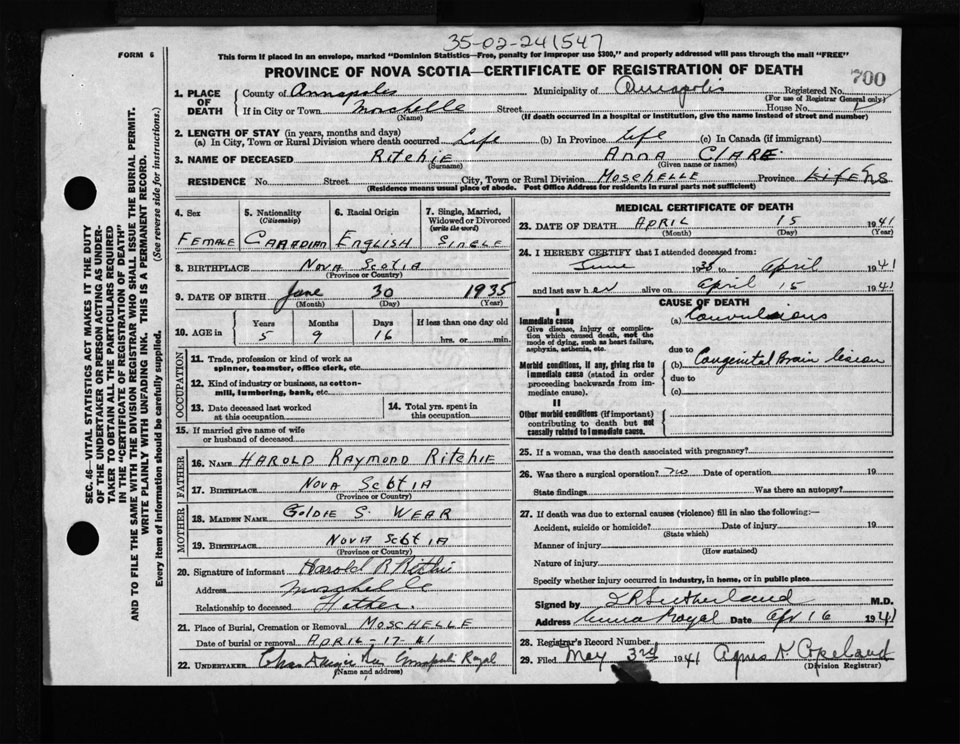 35-02-241547
FORM 6
This form if placed in an envelope, marked "Dominion Statistics—Free, penalty for improper use $300," and properly addressed will pass through the mail "FREE"
PROVINCE OF NOVA SCOTIA—CERTIFICATE OF REGISTRATION OF DEATH
700
SEC. 46—VITAL STATISTICS ACT MAKES IT THE DUTY
OF THE UNDERTAKER OR PERSON ACTING AS UNDER-
TAKER TO OBTAIN ALL THE PARTICULARS REQUIRED
IN THE "CERTIFICATE OF REGISTRATION OF DEATH"
AND TO FILE THE SAME WITH THE DIVISION REGISTRAR WHO SHALL ISSUE THE BURIAL PERMIT.
WRITE PLAINLY WITH UNFADING INK. THIS IS A PERMANENT RECORD.
Every item of information should be carefully supplied. (See reverse side for instructions.)
1. PLACE OF DEATH
County of Annapolis Municipality of Annapolis Registered No.
(For use of Registrar General only)
If in City or Town Moschelle Street House No.
(Name) (If death occurred in a hospital or institution, give the name instead of street and number)
2. LENGTH OF STAY (in years, months and days)
(a) In City, Town or Rural Division where death occurred Life (b) In Province life (c) In Canada (if immigrant)
3. NAME OF DECEASED Ritchie Anna Clare
(Surname) (Given name or names)
RESIDENCE No. Street City, Town or Rural Division Moschelle Province NS
(Residence means usual place of abode. Post Office Address for residents in rural parts not sufficient)
4. Sex
Female
5. Nationality
(Citizenship)
Canadian
6. Racial Origin
English
7. Single, Married, Widowed or Divorced
(write the word)
Single
8. BIRTHPLACE Nova Scotia
(Province or Country)
9. DATE OF BIRTH June 30 1935
(Month) (Day) (Year)
10. AGE in Years Months Days If less than one day old
5 9 16 hrs. or min.
OCCUPATION
11. Trade, profession or kind of work as
spinner, teamster, office clerk, etc.
12. Kind of industry or business, as cotton-
mill, lumbering, bank, etc.
13. Date deceased last worked
at this occupation
14. Total yrs. spent in
this occupation
15. If married give name of wife
or husband of deceased
FATHER
16. NAME Harold Raymond Ritchie
17. BIRTHPLACE Nova Scotia
(Province or Country)
MOTHER
18. MAIDEN NAME Goldie S. Wear
19. BIRTHPLACE Nova Scotia
(Province or Country)
20. Signature of informant Harold R Ritchie
Address Moschelle
Relationship to deceased Father.
21. Place of Burial, Cremation or Removal Moschelle
Date of burial or removal April-17-41
22. UNDERTAKER Annapolis Royal
(Name and address)
MEDICAL CERTIFICATE OF DEATH
23. DATE OF DEATH April 15 1941
(Month) (Day) (Year)
24. I HEREBY CERTIFY that I attended deceased from:
June 1935 to April 1941
and last saw her alive on April 15 1941
CAUSE OF DEATH
I
Immediate cause
Give disease, injury or complica-
tion which caused death, not the
mode of dying, such as heart failure,
asphyxia, asthenia, etc.
(a) Convulsions
due to
Morbid conditions, if any, giving rise to
immediate cause (stated in order
proceeding backwards from im-
mediate cause).
(b) Congenital Brain lesion
due to
(c)
II
Other morbid conditions (if important)
contributing to death but not
causally related to immediate cause.
25. If a woman, was the death associated with pregnancy?
26. Was there a surgical operation? no Date of operation 19
State findings Was there an autopsy?
27. If death was due to external causes (violence) fill in also the following:—
Accident, suicide or homicide? Date of injury 19
(State which)
Manner of injury
(How sustained)
Nature of injury
Specify whether injury occurred in industry, in home, or in public place
Signed by Sutherland M.D.
Address Anna Royal Date Apr 16 1941
28. Registrar's Record Number
29. Filed May 3rd 1941 Agnes N. Copeland
(Division Registrar)